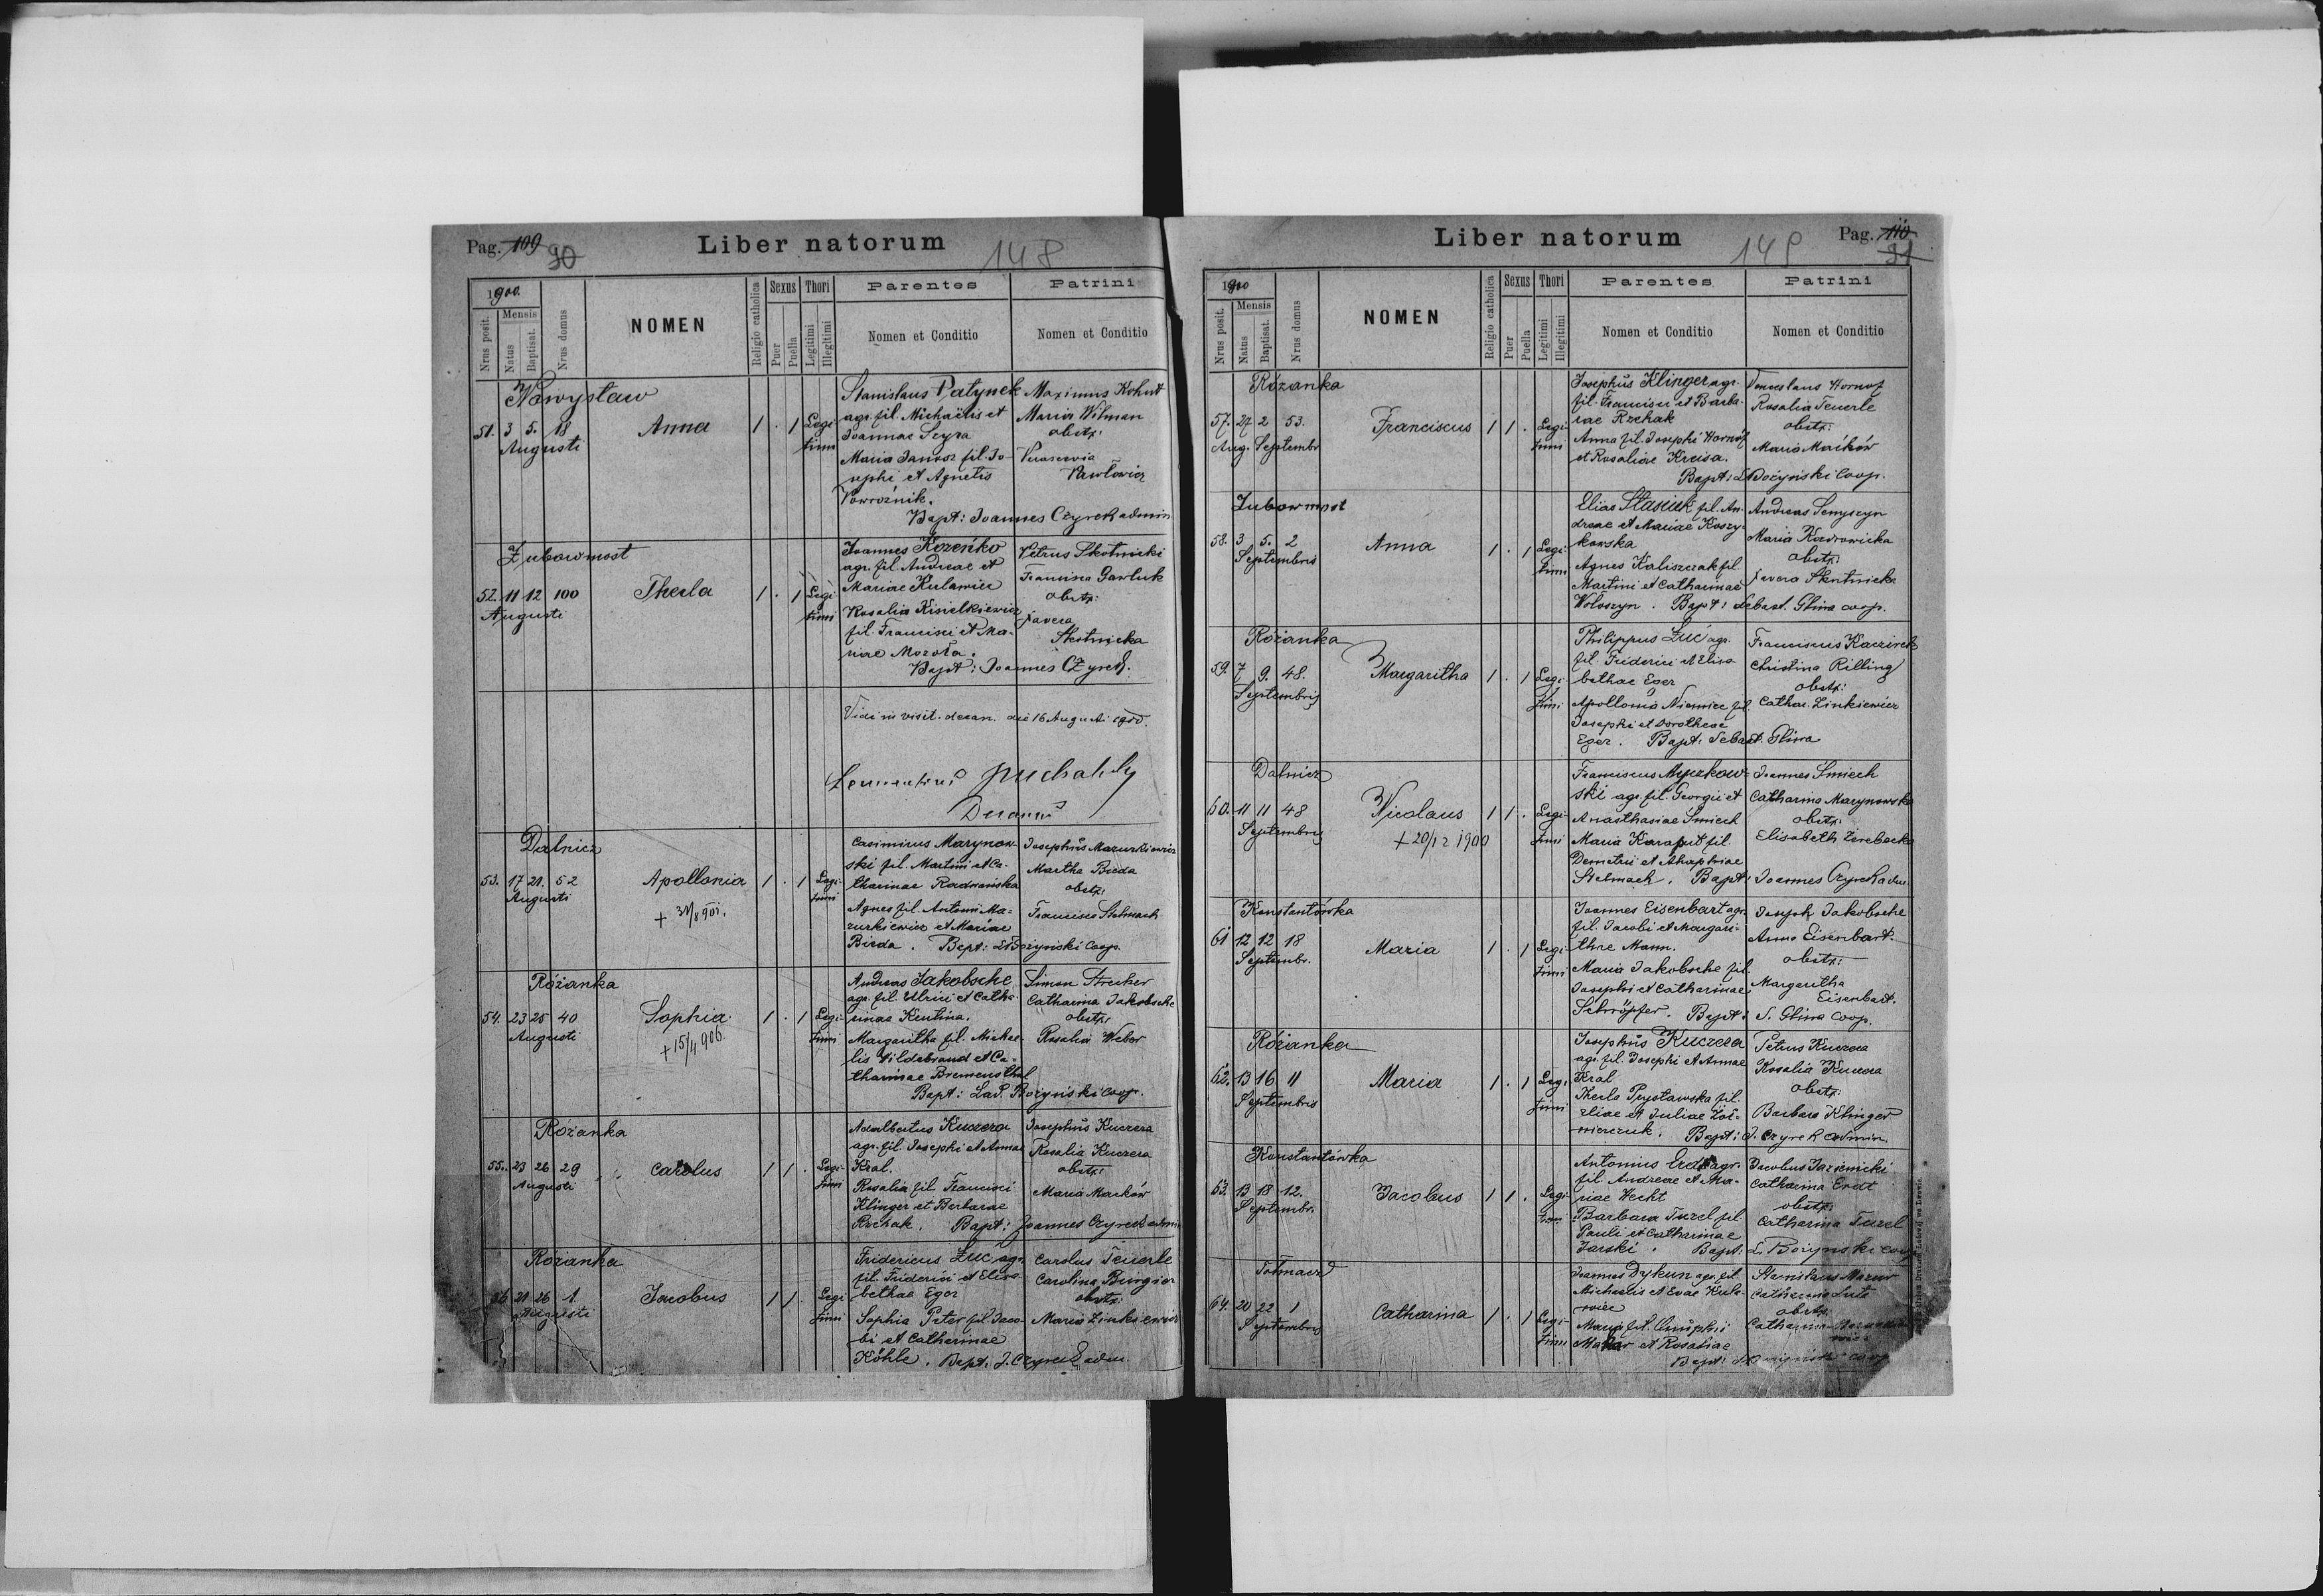 Pag. 109
90
Liber natorum
148
1900.
Nrus posit.
Mensis
Natus
Baptisat.
Nrus domus
NOMEN
Religio catholica
Sexus
Puer
Puella
Thori
Legitimi
Illegitimi
Parentes
Nomen et Conditio
Patrini
Nomen et Conditio
51. 3 5. 18
Augusti
Anna
1 . 1 Legi
timi
Stanislaus Patynek
agr. fil. Michaëlis et
Joannae Szyra
Maria Janosz fil. Jo-
sephi et Agnetis
Powroźnik.
Maximus Kohut
Maria Wilman
obstx:
Pawłowicz
Bapt: Joannes Czyrek admin
Żubowmost
52. 11 12 100
Augusti
Thecla
1 . 1 Legi
timi
Joannes Kozeńko
agr. fil. Andreae et
Mariae Kulawiec
Rosalia Kisielkiewicz
fil. Francisci et Ma-
riae Mozoła.
Petrus Skotnicki
Francisca Gawluk
obstx:
Xavera
Skotnicka
Bapt: Joannes Czyrek.
Vidi in visit. decan. die 16 Augusti 1900.
Decanus
Dalnicz
53. 17 21. 52
Augusti
Apollonia
+ 31/8 901.
1 . 1 Legi-
timi
Casimirus Marynow-
ski fil. Martini et Ca-
tharinae Radwańska
Agnes fil. Antonii Ma-
zurkiewicz et Mariae
Bieda. Bapt: L. Bożyński Coop.
Josephus Mazurkiewicz
Martha Bieda
obstx:
Francisca Stelmach
Różanka
54. 23 25 40
Augusti
Sophia
+ 15/4 906.
1 . 1 Legi-
timi
Andreas Jakobsche
agr. fil. Ulrici et Catha-
rinae Kentina.
Margaritha fil. Michae-
lis Hildebrand et Ca-
tharinae Bremensthal
Simon Strecker
Catharina Jakobsche
obstx:
Rosalia Weber
Bapt: Lad. Bożyński coop.
Rożanka
55. 23 26 29
Augusti
Carolus
1 1 . Legi-
timi
Adalbertus Kuczera
agr. fil. Josephi et Annae
Kral.
Rosalia fil. Francisci
Klinger et Barbarae
Rzehak. Bapt: Joannes Czyrek admin
Josephus Kuczera
Rosalia Kuczera
obstx:
Maria Maćków
Rożanka
56 21 26 1.
Augusti
Jacobus
1 1 . Legi
timi
Fridericus Żuc agr.
fil. Friderici et Elisa-
bethae Eger
Sophia Peter fil. Jaco-
bi et Catharinae
Köhle. Bapt. J. Czyrek adm.
Carolus Feuerle
Carolina Burgier
obstx:
Maria Zinkiewicz
Liber natorum
149
Pag. 110
91
1900
Nrus posit.
Mensis
Natus
Baptisat.
Nrus domus
NOMEN
Religio catholica
Sexus
Puer
Puella
Thori
Legitimi
Illegitimi
Parentes
Nomen et Conditio
Patrini
Nomen et Conditio
Rózanka
57. 27 2 53.
Aug. Septembr
Franciscus
1 1 . Legi
timi
Josephus Klinger agr.
fil. Francisci et Barba-
rae Rzehak
Anna fil. Josephi Hornof
et Rosaliae Kreisa.
Venceslaus Hornof
Rosalia Feuerle
obstx:
Maria Maćków
Bapt: L. Bożyński Coop.
Żubowmost
58. 3 5. 2
Septembris
Anna
1 . 1 Legi
timi
Elias Stasiuk fil. An-
dreae et Mariae Koszy-
kowska
Agnes Kaliszczak fil.
Martini et Catharinae
Wołoszyn. Bapt: Sebast. Gliwa coop.
Andreas Semyszyn
Maria Kozdrowicka
obstx:
Xavera Skotnicka
Różanka
59. 7 9. 48.
Septembris
Margaritha
1 . 1 Legi-
timi
Philippus Żuć agr.
fil. Friderici et Elisa
bethae Eger
Apollonia Niemiec fil
Josephi et Dorotheae
Eger. Bapt: Sebast. Gliwa
Franciscus Kaczirek
Christina Rilling
obstx:
Cathar. Zinkiewicz
Dalnicz
60. 11 11 48
Septembris
Nicolaus
+ 20/12 1900
1 1 . Legi-
timi
Franciscus Myczkow-
ski agr. fil. Georgii et
Anasthasiae Śmiech
Maria Karaput fil.
Demetri et Ahaphiae
Stelmach. Bapt: Joannes Czyrek adm.
Joannes Smiech
Catharina Marynowska
obstx:
Elisabeth Zerebecka
Konstantówka
61 12 12 18
Septembr.
Maria
1 . 1 Legi-
timi
Joannes Eisenbart agr.
fil. Jacobi et Margari-
thae Mann.
Maria Jakobsche fil.
Josephi et Catharinae
Schröpfer. Bapt: S. Gliwa coop.
Joseph Jakobsche
Anna Eisenbart.
obstx:
Margaritha
Eisenbart.
Różanka
62. 13 16 11
Septembris
Maria
1 . 1 Legi
timi
Josephus Kuczera
agr. fil. Josephi et Annae
Kral
Thecla Prystawska fil.
Eliae et Juliae
Bapt: J. Czyrek admin.
Petrus Kuczera
Rosalia Kuczera
obstx:
Barbara Klinger
Konstantówka
63. 13 18 12.
Septembr.
Jacobus
1 1 . Legi-
timi
Antonius Erdt agr.
fil. Andreae et Ma-
riae Hecht
Barbara Turel fil.
Pauli et Catharinae
Jarski. Bapt: L. Bożyński coop
Jacobus Jarienicki
Catharina Erdt
obstx:
Catharina Turel
Tołmacz
64. 20 22 1
Septembris
Catharina
1 . 1 Legi-
timi
Joannes Dykun agr. fil.
Michaelis et Evae Kula-
wiec
Maria fil. Onuphri
Mazur et Rosaliae
Stanislaus Mazur
Catharina Luta
obstx:
Catharina